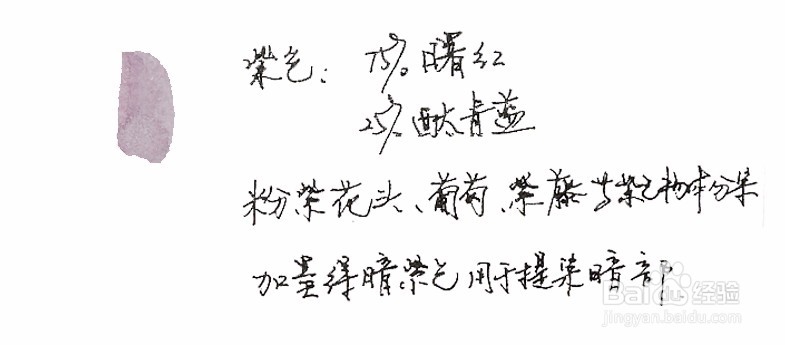 紫色：75% 曙红
25% 酞青蓝
粉紫花头、葡萄、紫藤等紫色物体分染
加墨得暗紫色用于提染暗部
Baidu经验
jingyan.baidu.com